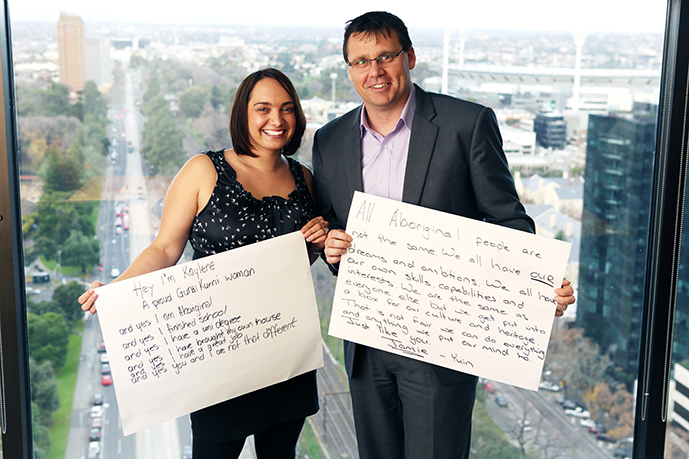 Hey I'm Kaylene
A proud Gunai Kurni woman
and yes I am Aboriginal
and yes, I finished school
and yes, I have a uni degree
and yes I have brought my own house
and yes I have a great job
and yes you and I are not that different
All Aboriginal people are
not the same. We all have our
dreams and ambitions. We all have
our own skills, capabilities and
interests. We are the same as
everyone else. But we are put into
a box for our culture and heritage.
This is not fair. We can do everything
and anything we put our mind to.
Just like you.
Jamie - Yuin